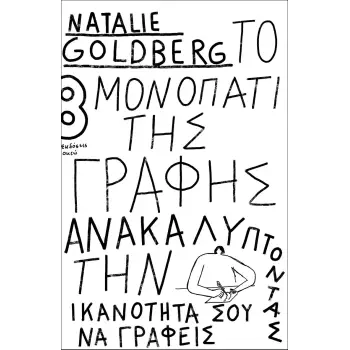 NATALIE
GOLDBERG ΤΟ
ΜΟΝΟΠΑΤΙ
εκδόσεις
οκτώ
ΤΗΣ
ΓΡΑΦΗΣ
ΑΝΑΚΑΛΥΠΤΟΝΤΑΣ
ΤΗΝ
ΙΚΑΝΟΤΗΤΑ ΣΟΥ
ΝΑ ΓΡΑΦΕΙΣ